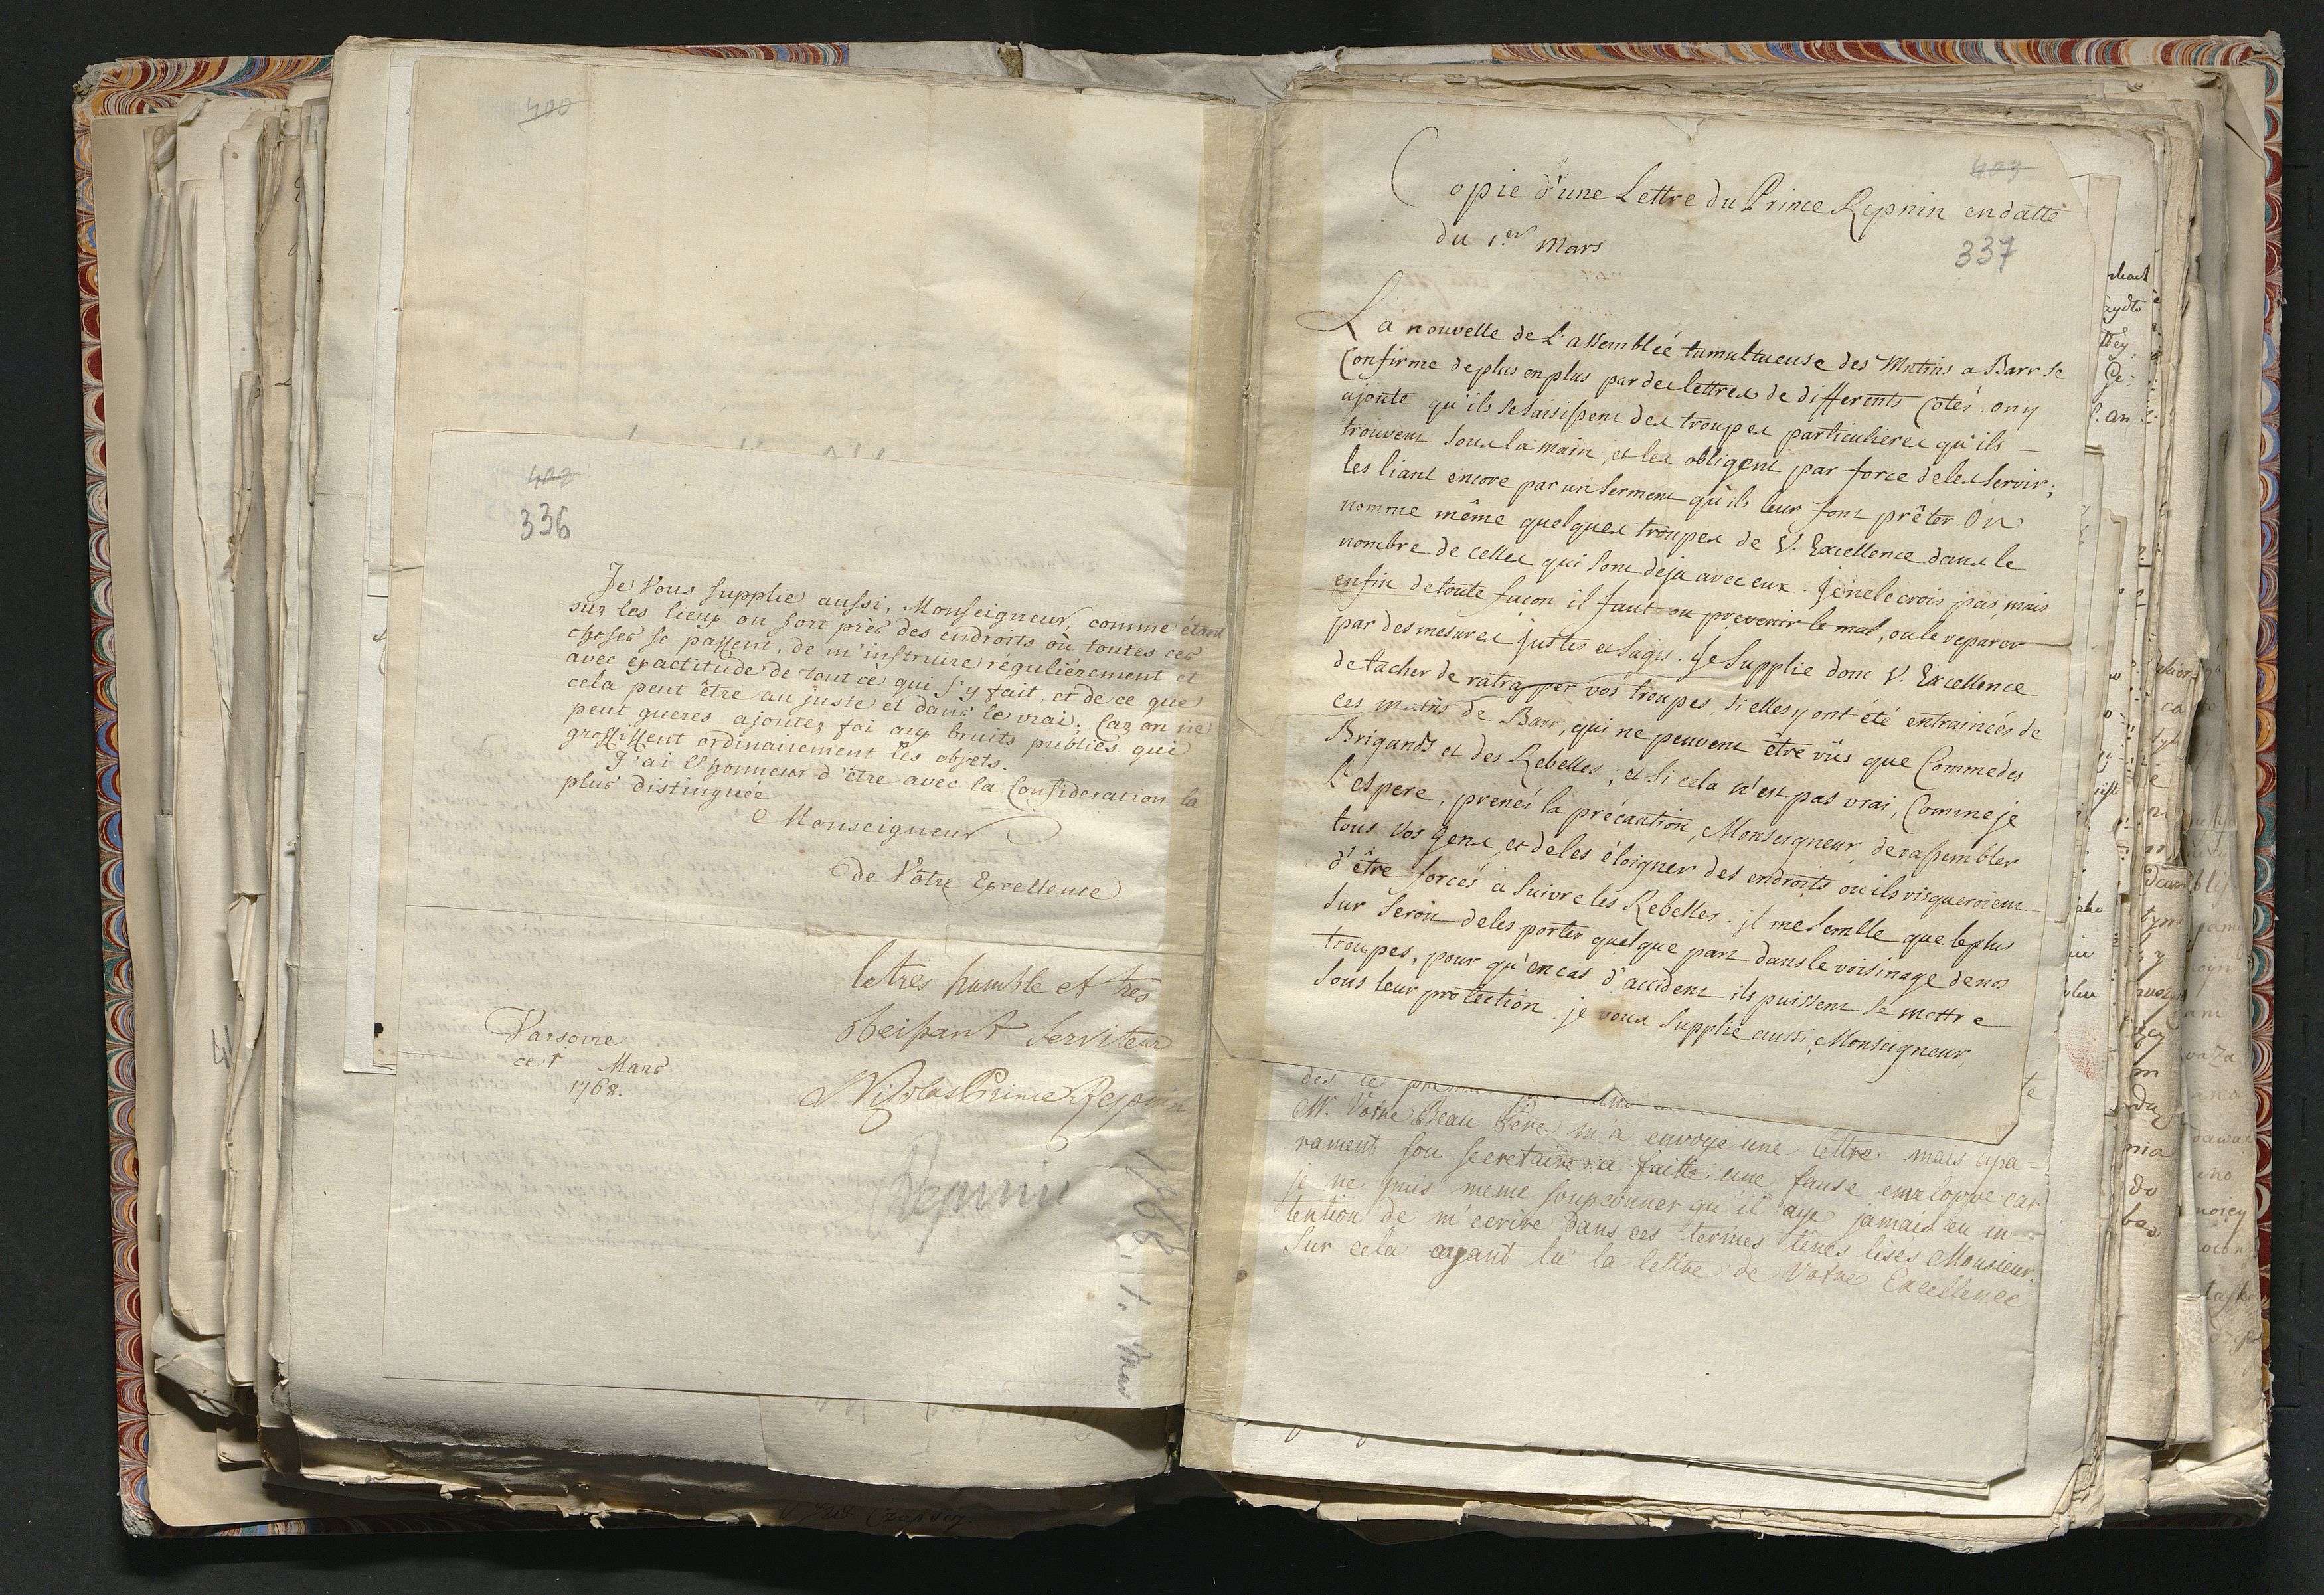 400
402
336
Je Vous Supplie aussi, Monseigneur, comme étant
sur les lieux ou fort près des endroits où toutes ces
choses se passent, de m'instruire régulièrement et
avec exactitude de tout ce qui s'y fait, et de ce que
cela peut être au juste et dans le vrai; Car on ne
peut gueres ajouter foi aux bruits publics qui
grossissent ordinairement les objets.
J'ai l'honneur d'être avec la Consideration la
plus distinguée
Monseigneur
de Vôtre Excellence
le tres humble et tres
obeissant Serviteur
Nicolas Prince Repnin
Varsovie
ce 1 Mars
1768.
Repnin
1768. 1. Mar
Copie d'une Lettre du Prince Repnin en datte
du 1.er Mars
337
La nouvelle de L'assemblée tumultueuse des Mutins a Barr se
Confirme de plus en plus par des lettres de differents Cotés. on y
ajoute qu'ils se saisissent des troupes particulieres qu'ils
trouvent sous la main, et les obligent par force de les servir;
les liant encore par un serment qu'ils leur font prêter. On
nomme même quelques troupes de V. Excellence dans le
nombre de celles qui sont deja avec eux. Je ne le crois pas, mais
enfin de toute facon il faut ou prevenir le mal, ou le reparer
par des mesures justes et sages. Je Supplie donc V. Excellence
de tacher de ratrapper vos troupes, si elles y ont été entrainées de
ces mutins de Barr, qui ne peuvent être vûs que Comme des
Brigands et des Rebelles; et si cela n'est pas vrai, Comme je
l'espere, prenés la précaution, Monseigneur, de rassembler
tous Vos gens, et de les éloigner des endroits ou ils risqueroient
d'être forcés à Suivre les Rebelles. il me semble que le plus
sur seroit de les porter quelque part dans le voisinage de nos
troupes, pour qu'en cas d'accident ils puissent se mettre
sous leur protection. je vous supplie aussi, Monseigneur,
M. Votre Beau Pere m'a envoyé une lettre mais apa-
rament son secretaire a faitte une fause enveloppe car
je ne puis meme soupconner qu'il aye jamais eu in-
tention de m'ecrire dans ces termes tenés lisés Monsieur.
Sur cela ayant lu la lettre de Votre Excellence